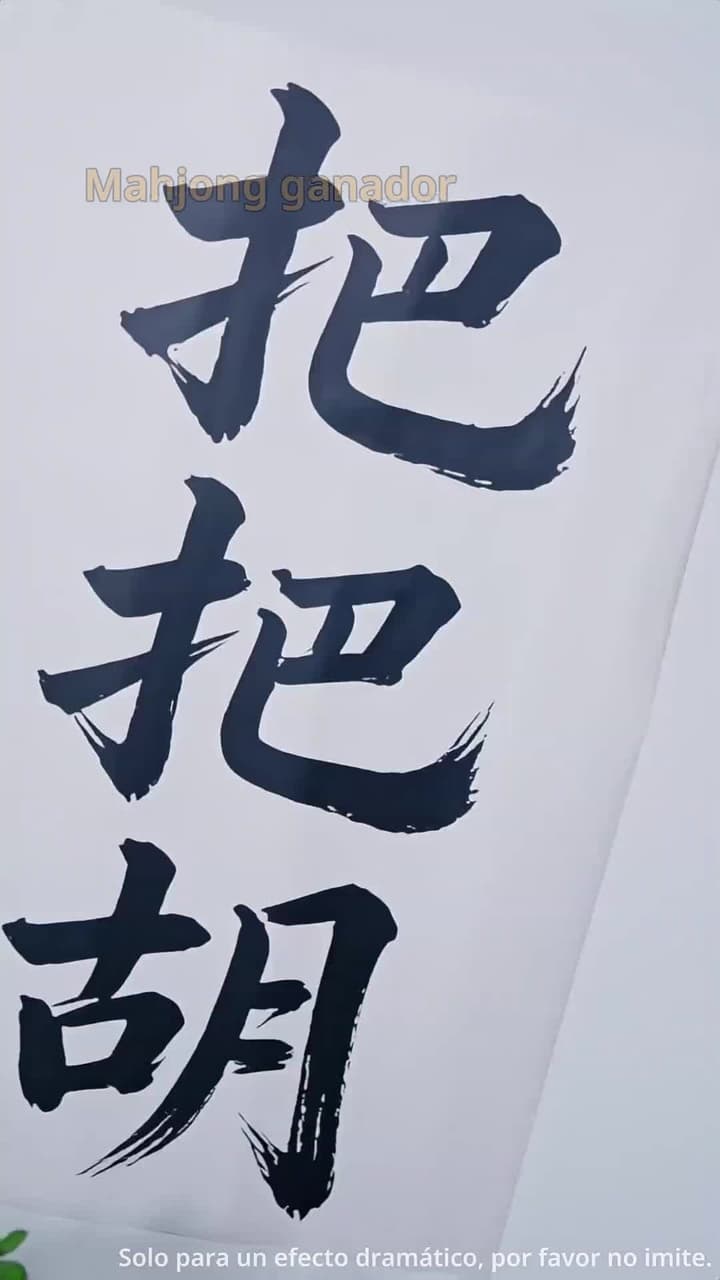 Mahjong ganador
把
把
胡
Solo para un efecto dramático, por favor no imite.